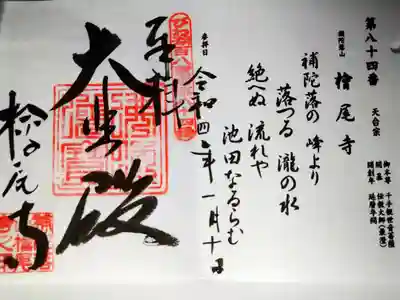 第八十四番
天台宗
補陀落山
檜尾寺
御本尊 千手観世音菩薩
開基 伝教大師(最澄)
開創年 延暦年間
補陀落の 峰より
落つる 瀧の水
絶へぬ 流れや
池田なるらむ
参拝日
令和四年一月十日
奉拝
大悲殿
桧の尾寺